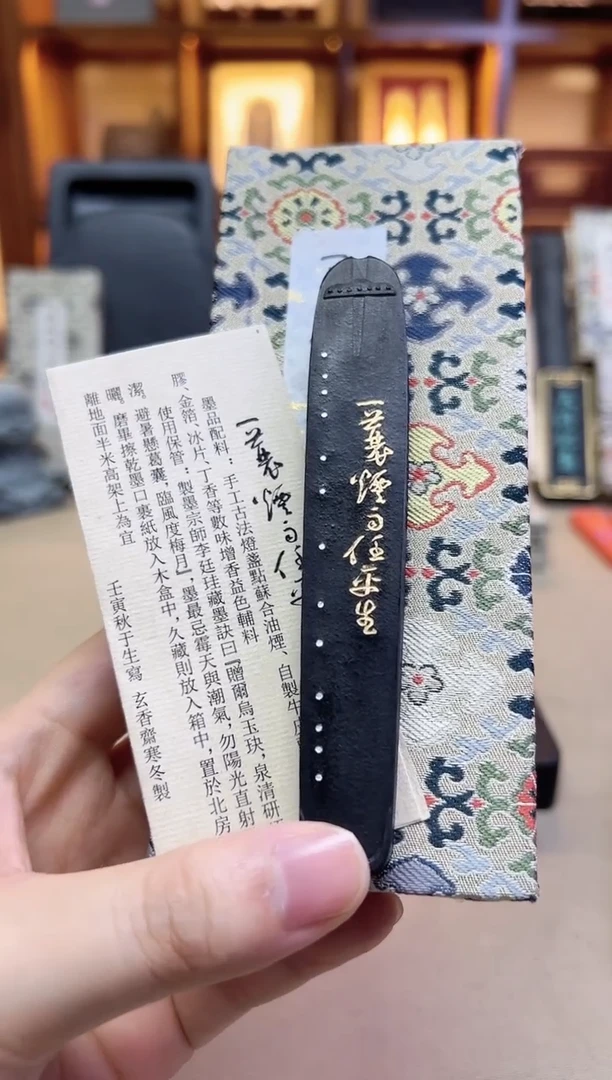 一蓑煙雨任平生
一蓑煙雨任
墨品配料：手工古法燈盞點蘇合油煙、自製牛
膠、金箔、冰片、丁香等數味增香益色輔料
使用保管：製墨宗師李廷珪藏墨訣曰『贈爾烏玉玦，泉清研
潔。避暑懸葛囊，臨風度梅月』，墨最忌霉天與潮氣，勿陽光直射
曬。磨畢擦乾墨口裹紙放入木盒中，久藏則放入箱中，置於北房
離地面半米高架上為宜 壬寅秋于生寫 玄香齋寒冬製